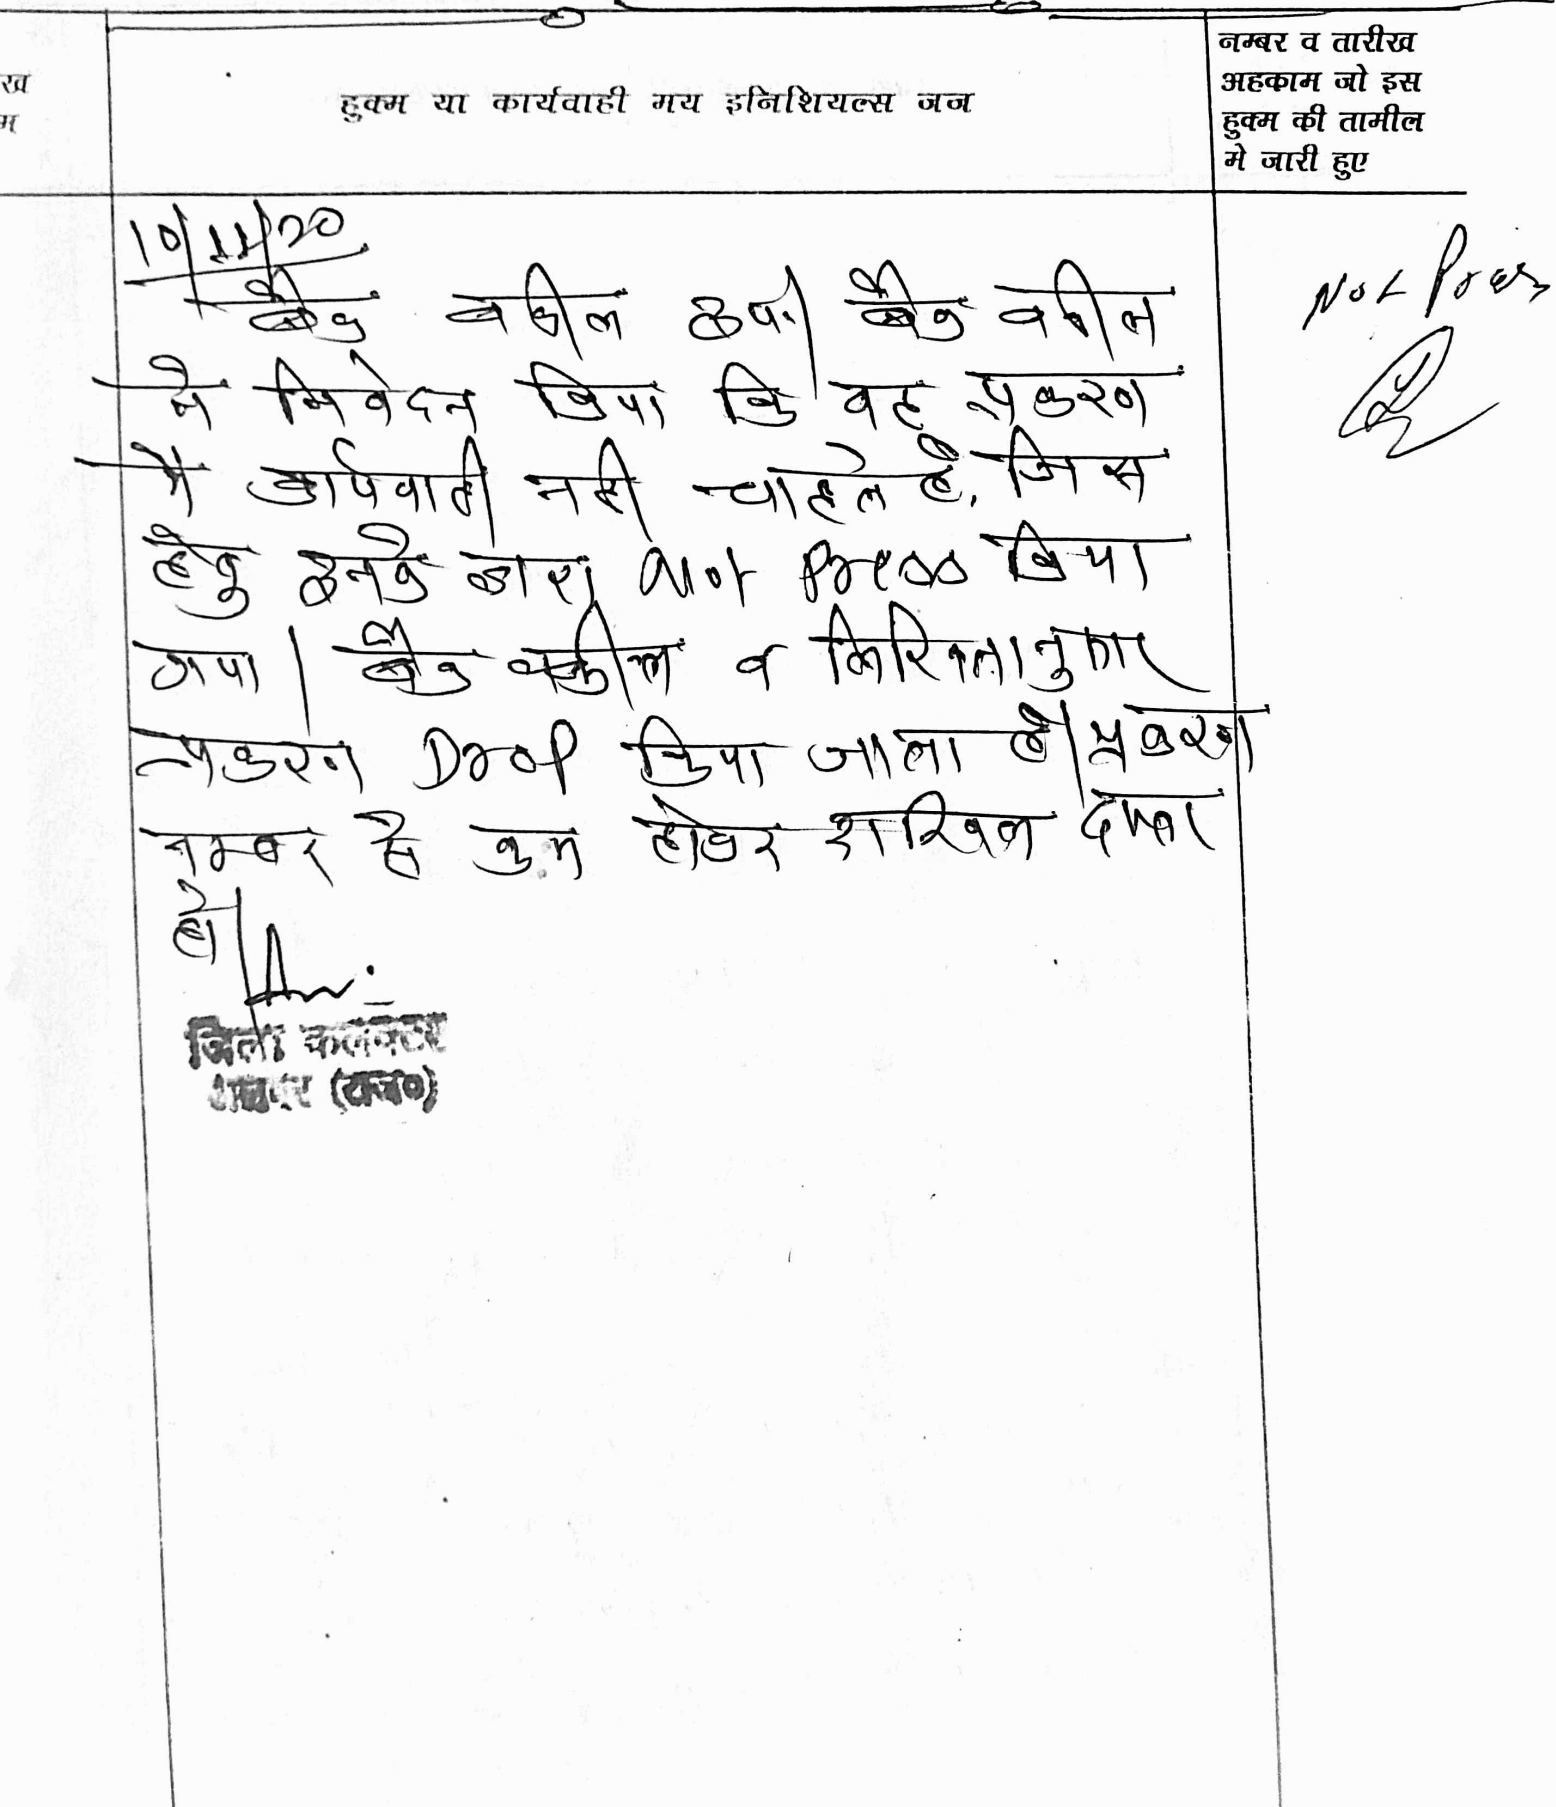 रख
म
हुक्म या कार्यवाही मय इनिशियल्स जज
नम्बर व तारीख
अहकाम जो इस
हुक्म की तामील
मे जारी हुए
10/11/20
बैंक वकील उप.। बैंक वकील
ने निवेदन किया कि वह प्रकरण
में कार्यवाही नही चाहते है, जिस
हेतु इनके द्वारा Not Press किया
गया। बैंक वकील व
प्रकरण Drop किया जाता है। प्रकरण
नम्बर से कम होकर दाखिल दफ्तर
हो।
Not Press
जिला कलक्टर
अलवर (राज०)